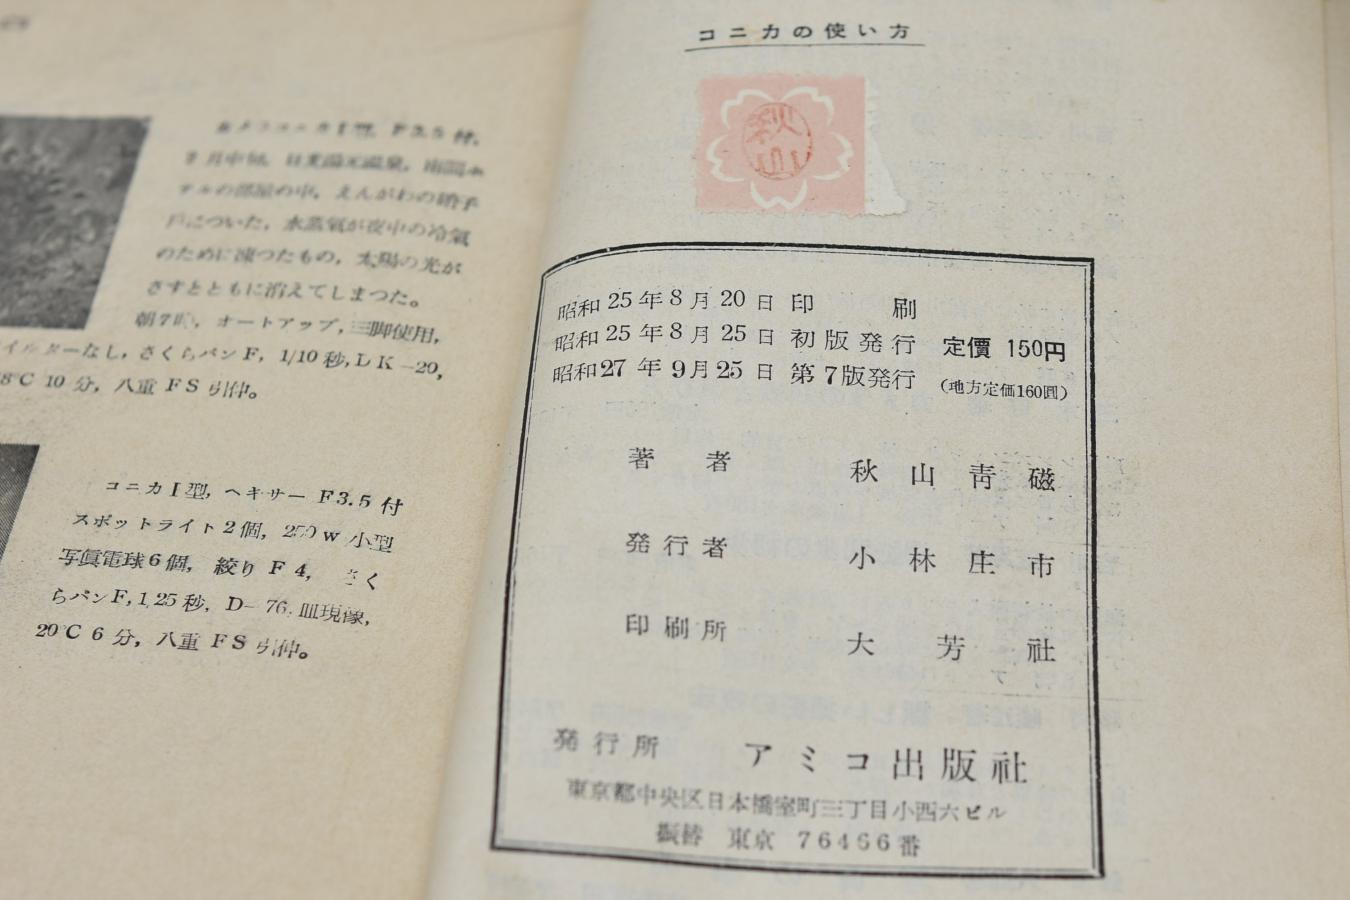 コニカⅠ型, F3.5 付,
の部屋の中, えんがわの硝子
戸についた, 水蒸氣が夜中の冷氣
のために凍つたもの, 太陽の光が
さすとともに消えてしまつた。
朝7時, オートアップ, 三脚使用,
ーなし, さくらパンF, 1/10 秒, DK-20,
8°C 10 分, 八重 FS 引伸。
コニカⅠ型, ヘキサー F3.5 付
スポットライト2個, 250w 小型
写眞電球6個, 絞り F 4, さく
らパンF, 1,25 秒, D-76, 皿現像,
20°C 6 分, 八重 FS 引伸。
コニカの使い方
秋山
昭和 25 年 8 月 20 日 印 刷
昭和 25 年 8 月 25 日 初版発行 定價 150円
昭和 27 年 9月 25 日 第7版発行 (地方定価160圓)
著者 秋山靑磁
発行者 小林庄市
印刷所 大芳社
発行所 アミコ出版社
東京都中央区日本橋室町三丁目小西六ビル
振替 東京 76466番